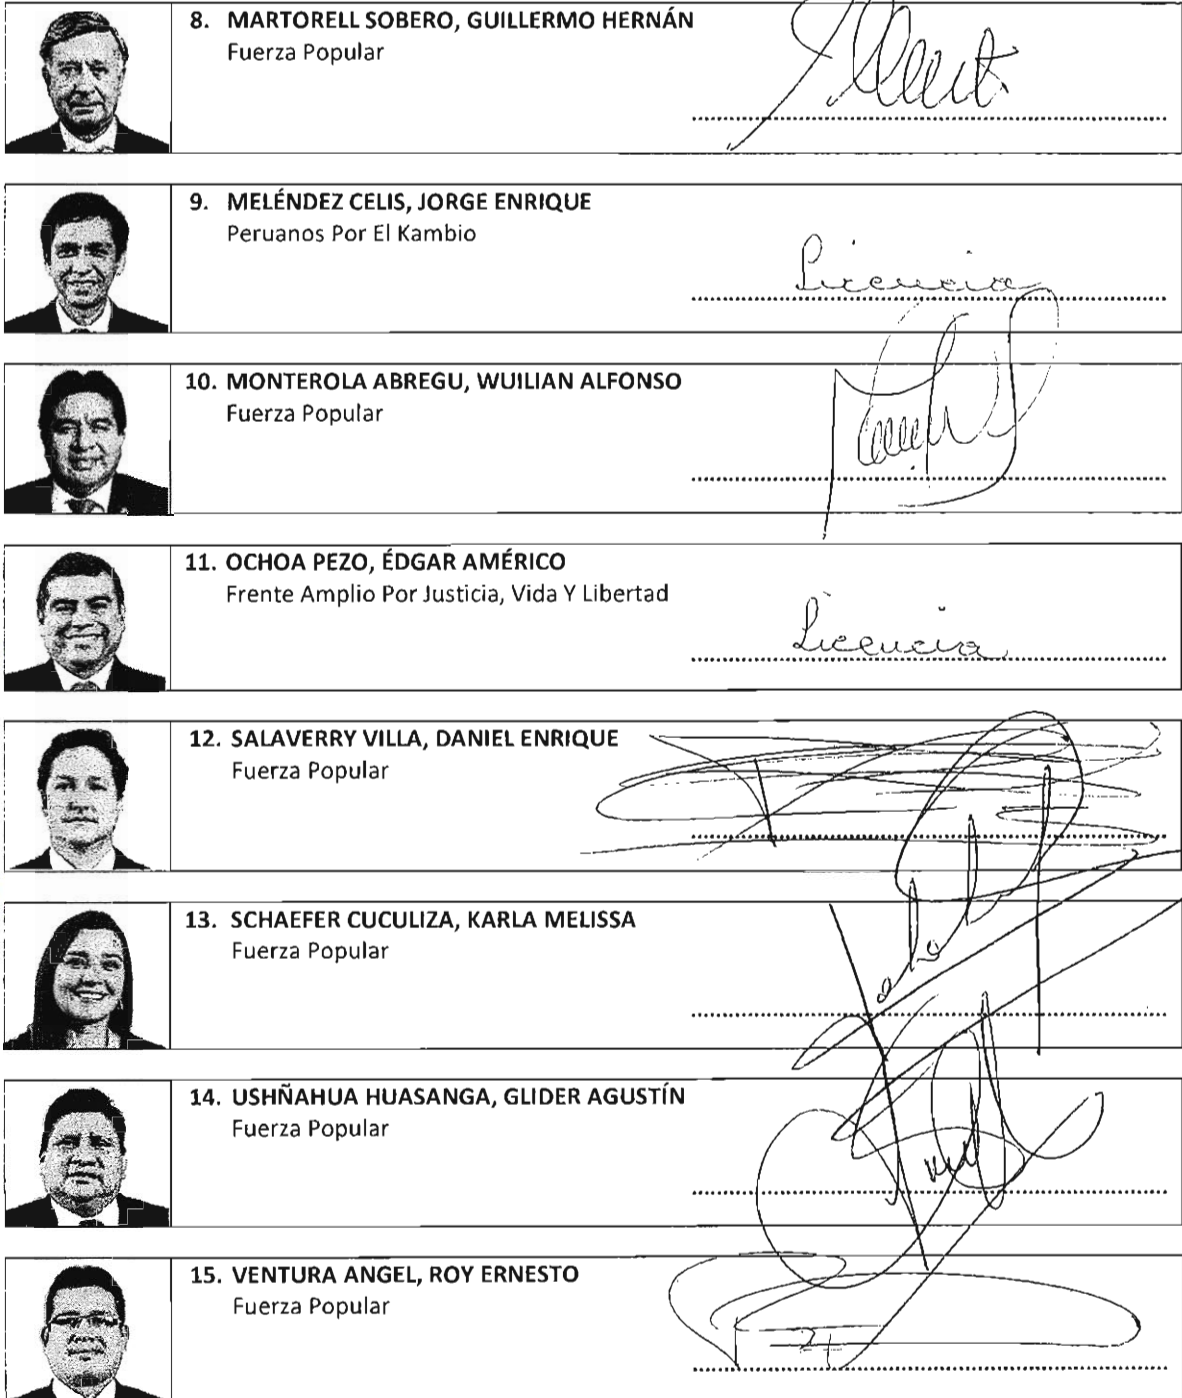 8. MARTORELL SOBERO, GUILLERMO HERNÁN
Fuerza Popular
9. MELÉNDEZ CELIS, JORGE ENRIQUE
Peruanos Por El Kambio
Licencia
10. MONTEROLA ABREGU, WUILIAN ALFONSO
Fuerza Popular
11. OCHOA PEZO, ÉDGAR AMÉRICO
Frente Amplio Por Justicia, Vida Y Libertad
Licencia
12. SALAVERRY VILLA, DANIEL ENRIQUE
Fuerza Popular
13. SCHAEFER CUCULIZA, KARLA MELISSA
Fuerza Popular
14. USHÑAHUA HUASANGA, GLIDER AGUSTÍN
Fuerza Popular
15. VENTURA ANGEL, ROY ERNESTO
Fuerza Popular